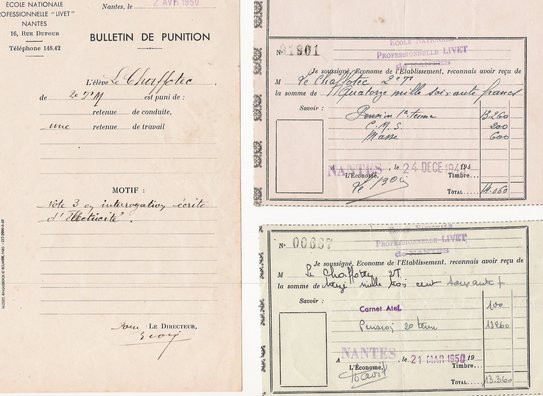 ÉCOLE NATIONALE
PROFESSIONNELLE "LIVET"
NANTES
16, RUE DUFOUR
Téléphone 148.42
Nantes, le 2 AVR 1950
BULLETIN DE PUNITION
L'élève Le Chaffotec
de 2e T M est puni de :
retenue de conduite,
une retenue de travail
MOTIF :
Note 3 en interrogation écrite
d'Electricité.
LE DIRECTEUR,
No 01901
ECOLE NATIONALE
PROFESSIONNELLE LIVET
de NANTES
Je soussigné, Econome de l'Etablissement, reconnais avoir reçu de
M Le Chaffotec 2e T
la somme de Quatorze mille soixante francs
Savoir :
Pension 1er terme 13.260
C.M.S. 200
Masse 600
NANTES, le 24 DECE 194
L'Économe, Timbre...
TOTAL... 14.060
No 00667
ECOLE NATIONALE
PROFESSIONNELLE LIVET
de NANTES
Je soussigné, Econome de l'Etablissement, reconnais avoir reçu de
M Le Chaffotec 2T
la somme de treize mille trois cent soixante f
Savoir :
Carnet Atel. 100
Pension 2e terme 13260
A NANTES, le 21 MAR 1950 19
L'Économe, Timbre...
TOTAL... 13.360